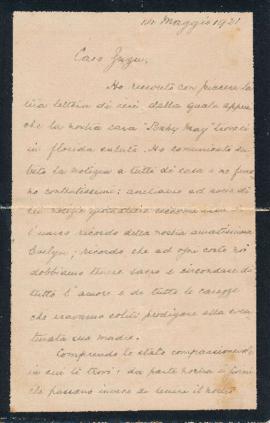 1° Maggio 1921
Caro Zuzu,
Ho ricevuto con piacere la
tua lettera di ieri dalla quale appren
che la nostra cara "Baby May" trovasi
in florida salute. Ho comunicato su
bito la notizia a tutti di casa e ne furo
no contentissimi: anch'essi
l'unico ricordo della nostra amatissima
Evelyn; ricordo che ad ogni costo noi
dobbiamo tenere sacro e circondare di
tutto l'amore e di tutte le carezze
che eravamo soliti prodigare alla sven
turata sua madre.
Comprendo lo stato compassionevole
in cui ti trovi: da parte nostra i giorni
che passano invece di lenire il nostro